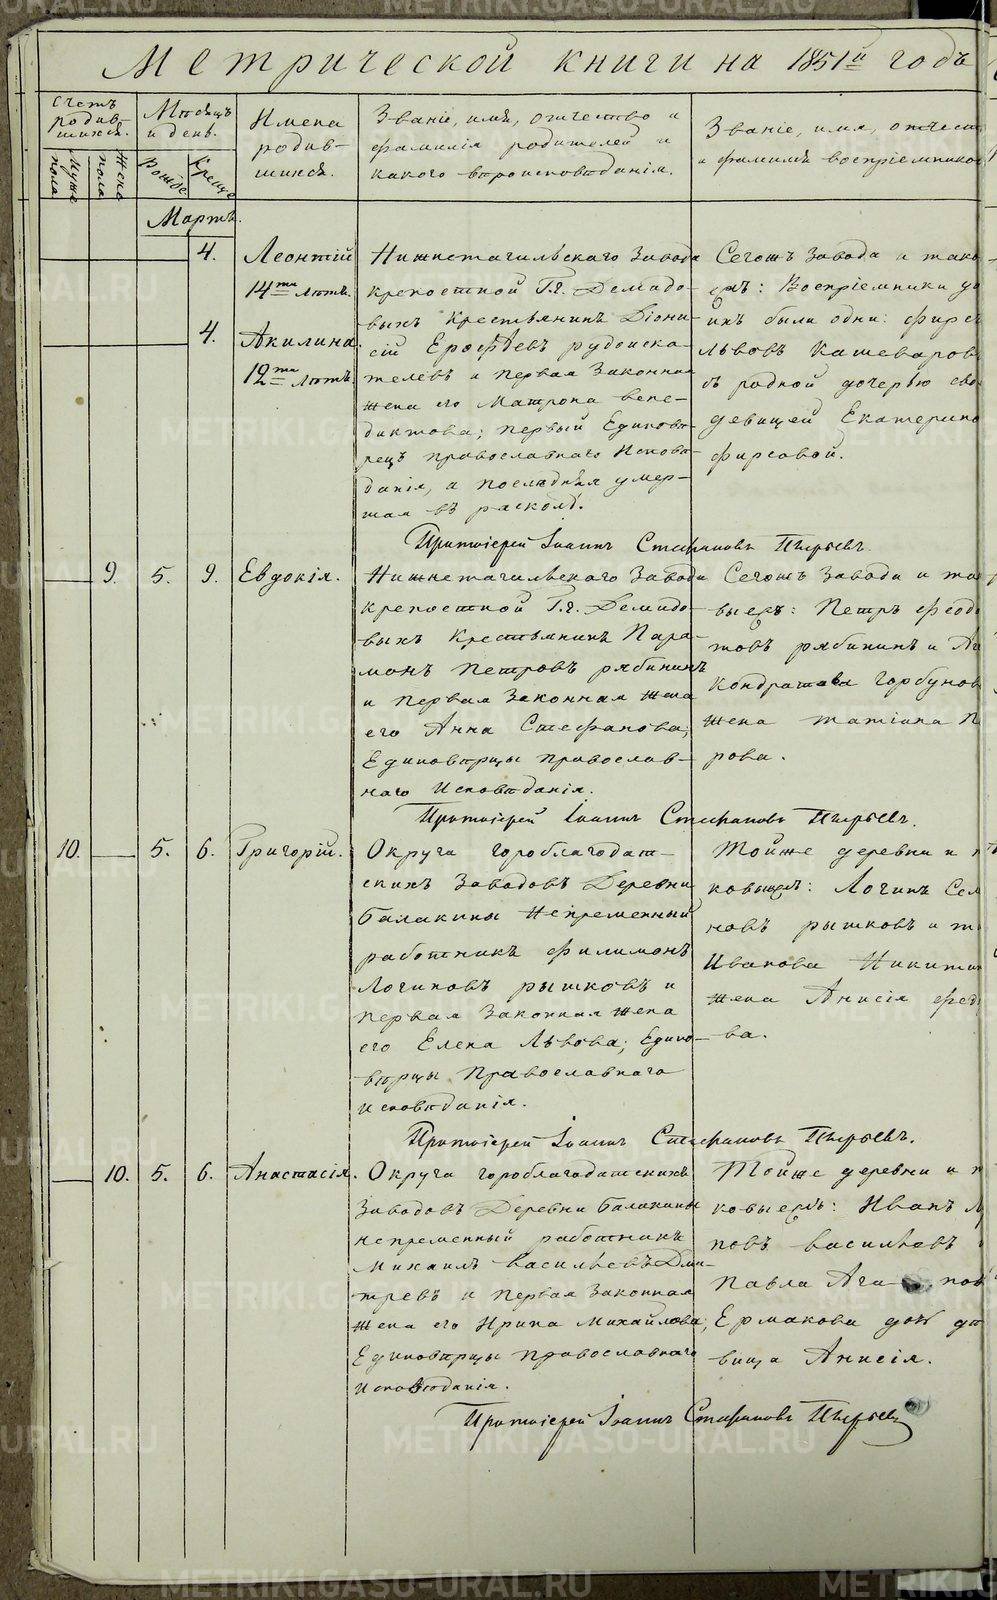 Метрической книги на 1851й годъ
Счетъ родив- шихся.
Мужс пола
Женс пола
Мѣсяцъ и день.
Рожде
Креще
Имена родив- шихся.
Званіе, имя, отчество и
фамилія родителей и
какого вѣроисповѣданія.
Званіе, имя, отчест
и фамилія воспріемнико
Мартъ.
4. Леонтій
14ти лѣтъ.
4. Акилина
12ти лѣтъ.
Нижнетагильскаго Завода
крепостной Г.г. Демидо-
выхъ Крестьянинъ Діони-
сій Ерофѣевъ рудоиска-
телевъ и первая Законная
жена его Матрона Вене-
диктова; первый Единовѣ-
рецъ православнаго Исповѣ-
данія, а послѣдняя умер-
шая въ расколѣ.
Сегожъ Завода и тако
выхъ: Воспріемники до
ихъ были одни: Фирсъ
Львовъ Кашеваров
съ родной дочерью сво
девицей Екатерино
Фирсовой.
Протоіерей Іоаннъ Стефановъ Пырьевъ.
9. 5. 9. Евдокія.
Нижнетагильскаго Завода
крепостной Г.г. Демидо-
выхъ Крестьянинъ Пара-
монъ Петровъ рябининъ
и первая Законная жена
его Анна Стефанова;
Единовѣрцы православ-
наго Исповѣданія.
Сегожъ Завода и та
выхъ: Петръ Федо
товъ рябининъ и
Кондратова Горбунов
жена татіана П
рова.
Протоіерей Іоаннъ Стефановъ Пырьевъ.
10. 5. 6. Григорій.
Округа гороблагодат-
скихъ Заводовъ Деревни
Балакины Непременный
работникъ Филимонъ
Логиновъ рышковъ и
первая Законная жена
его Елена Львова; Едино-
вѣрцы Православнаго
исповѣданія.
Тойже деревни и т
ковыхъ: Логинъ Сем
новъ рышковъ и
Иванова Никити
жена Анисія Фед
ва.
Протоіерей Іоаннъ Стефановъ Пырьевъ.
10. 5. 6. Анастасія.
Округа гороблагодатскихъ
Заводовъ Деревни Балакины
непременный работникъ
Михаилъ Васильевъ Дми-
тревъ и первая Законная
жена его Ирина Михайлова;
Единовѣрцы православнаго
исповѣданія.
Тойже деревни и т
ковыхъ: Иванъ
повъ Васильевъ
Павла Ага пов
Ермакова дочь дѣ
вица Анисія.
Протоіерей Іоаннъ Стефановъ Пырьевъ
METRIKI.GASO-URAL.RU